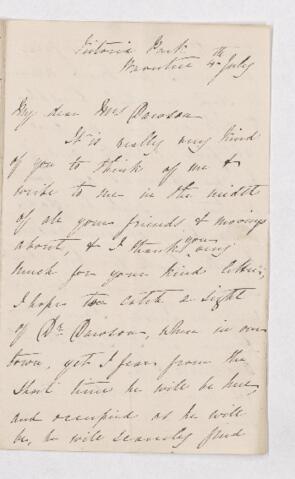 Victoria Park
4th July
My dear Mrs Dawson
It is really very kind
of you to think of me &
write to me in the midst
of all your friends & movings
about, & I thank you very
much for your kind letter,
I hope to catch a sight
of Dr. Dawson, when in our
town, yet I fear from the
short time he will be here,
and occupied as he will
be, he will scarcely find